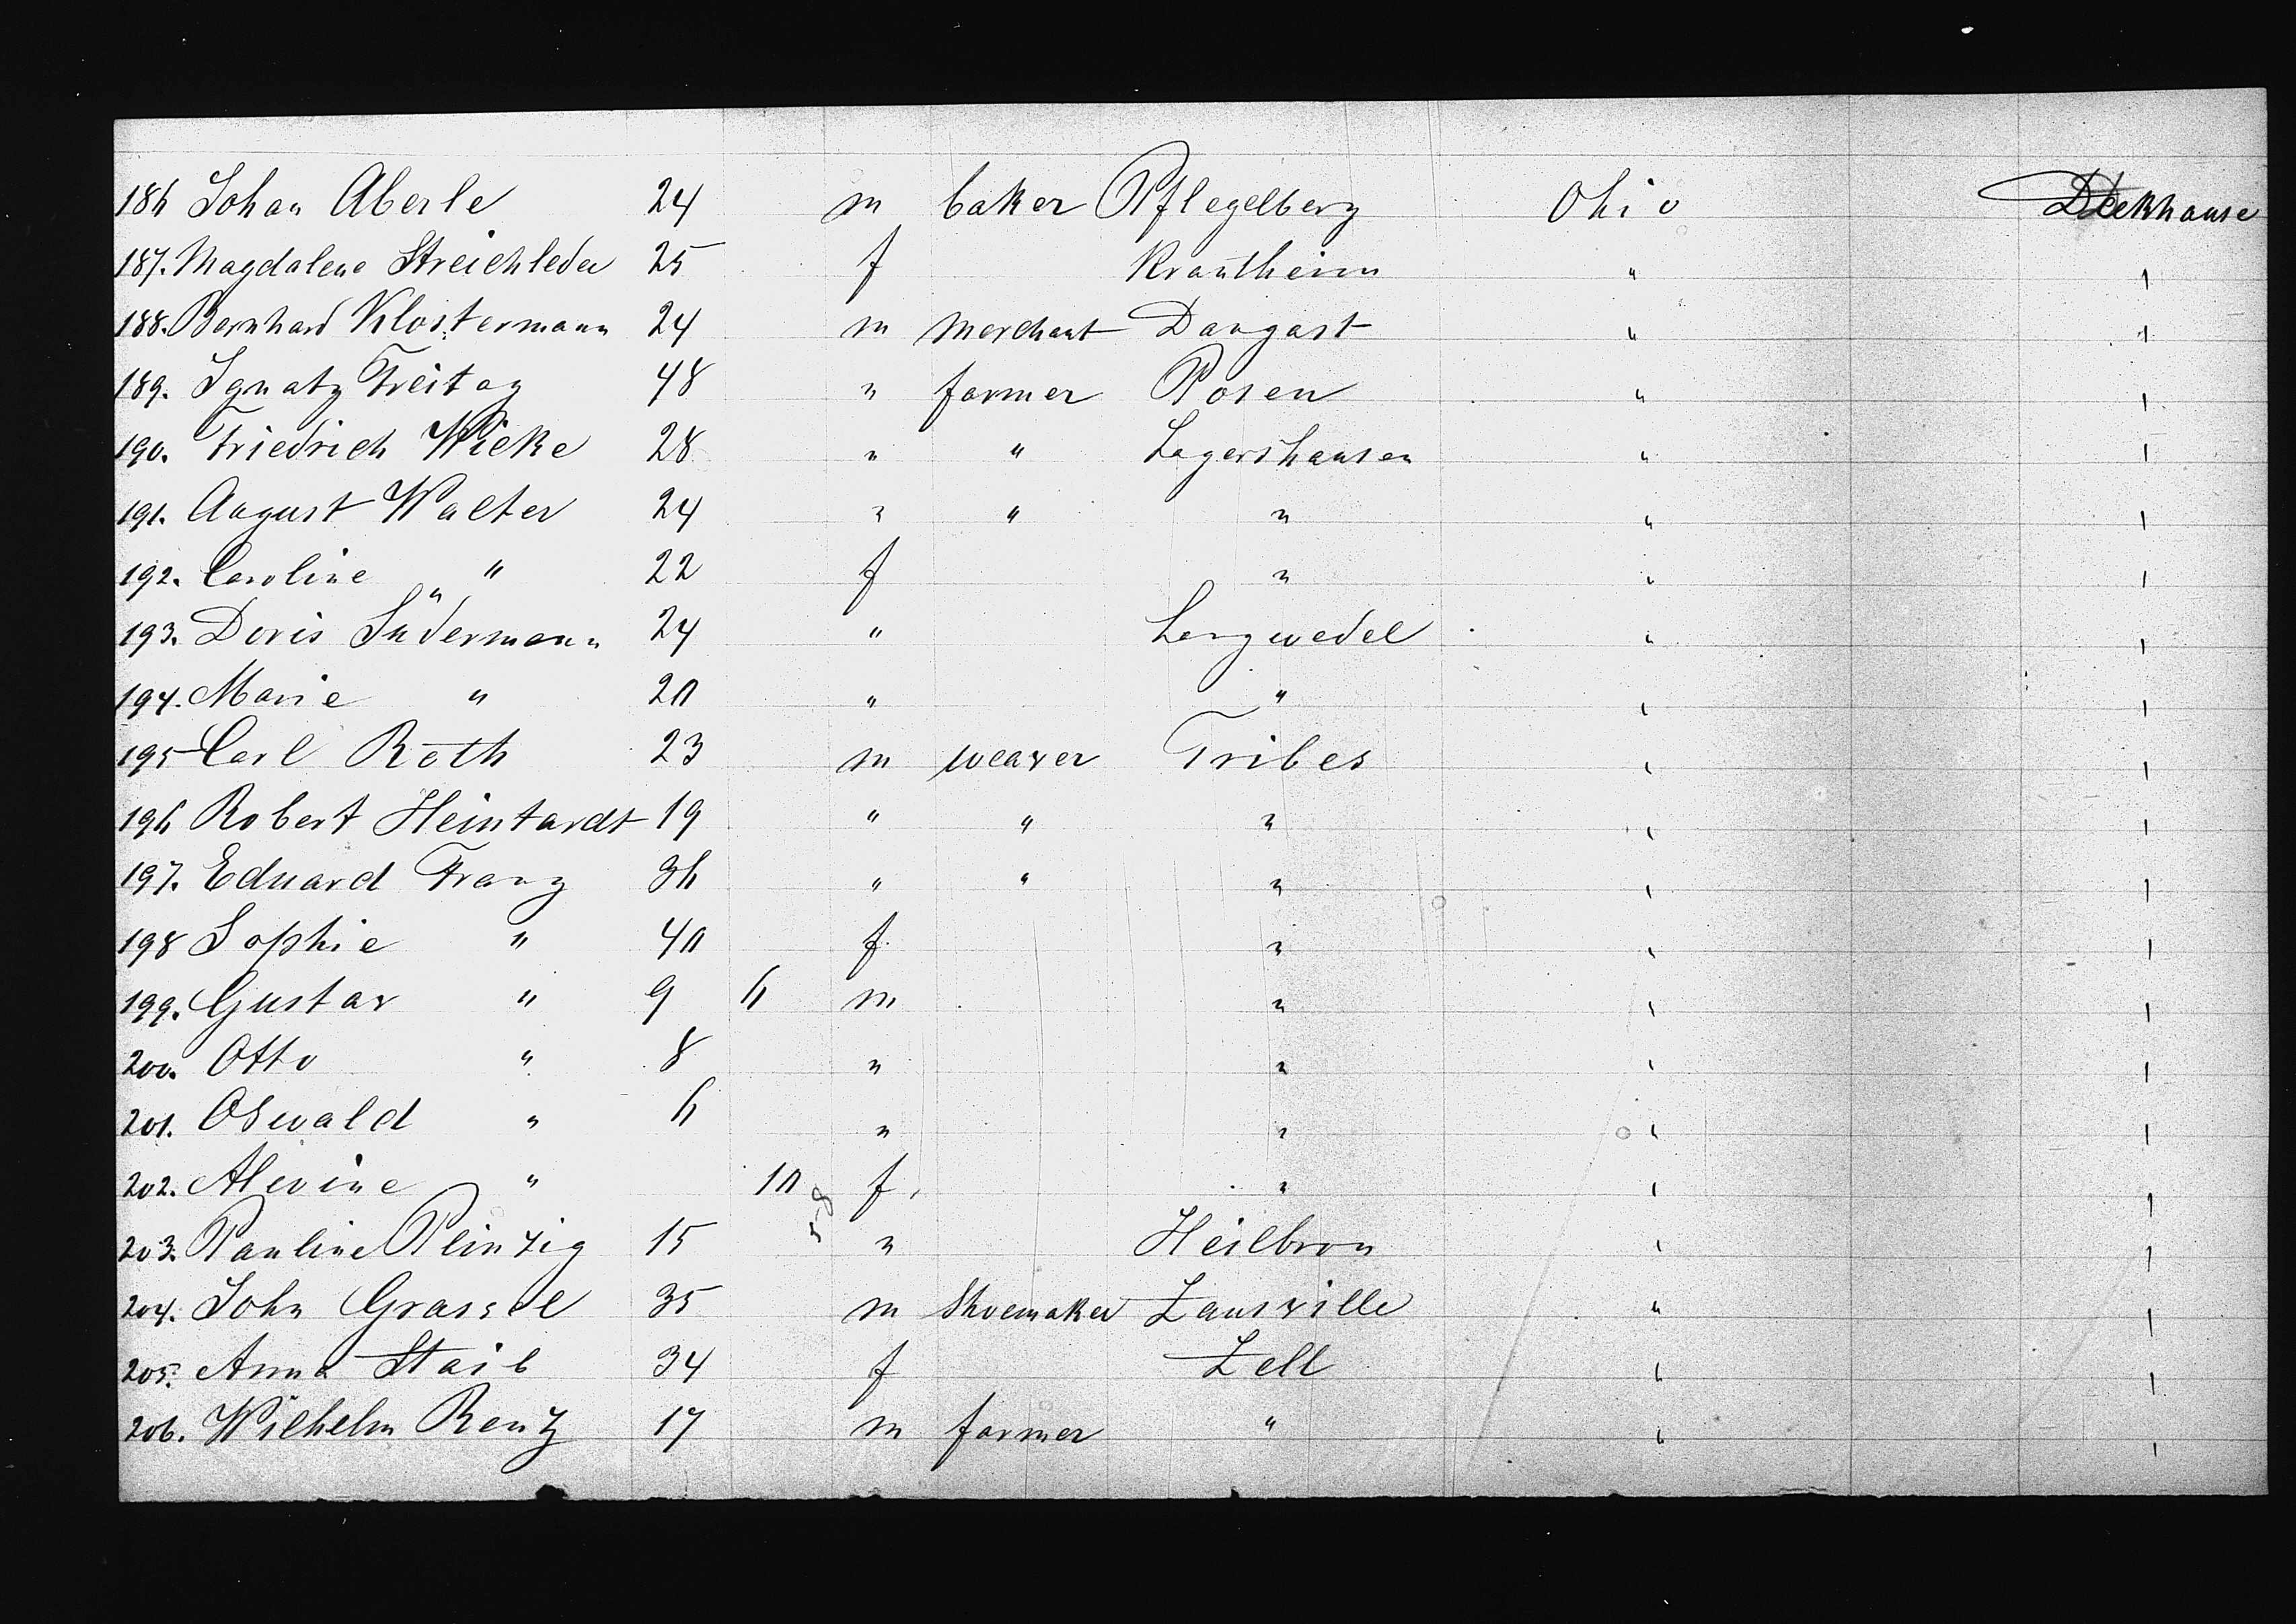 186 Johan Aberle 24 m baker Pflegelberg Ohio Deckhouse
187. Magdalene Streichleder 25 f Krautheim " "
188. Bernhard Klostermann 24 m Merchant Dangast " "
189. Ignatz Freitag 48 " farmer Posen " "
190. Friedrich Wieke 28 " " Lagershausen " "
191. August Walter 24 " " " " "
192. Caroline " 22 f " " "
193. Doris Südermann 24 " Langwedel " "
194. Marie " 20 " " " "
195 Carl Roth 23 m weaver Tribes " "
196 Robert Heintardt 19 " " " " "
197. Eduard Franz 36 " " " " "
198 Sophie " 40 f " " "
199. Gustav " 9 6 m " " "
200. Otto " 8 " " " "
201. Oswald " 6 " " " "
202. Alwine " 10 f. " " "
203. Pauline Plintzig 15 " Heilbron " "
204. John Grassel 35 m Shoemaker Zansville " "
205. Anna Staib 34 f Zell " "
206. Wilhelm Renz 17 m farmer " " "